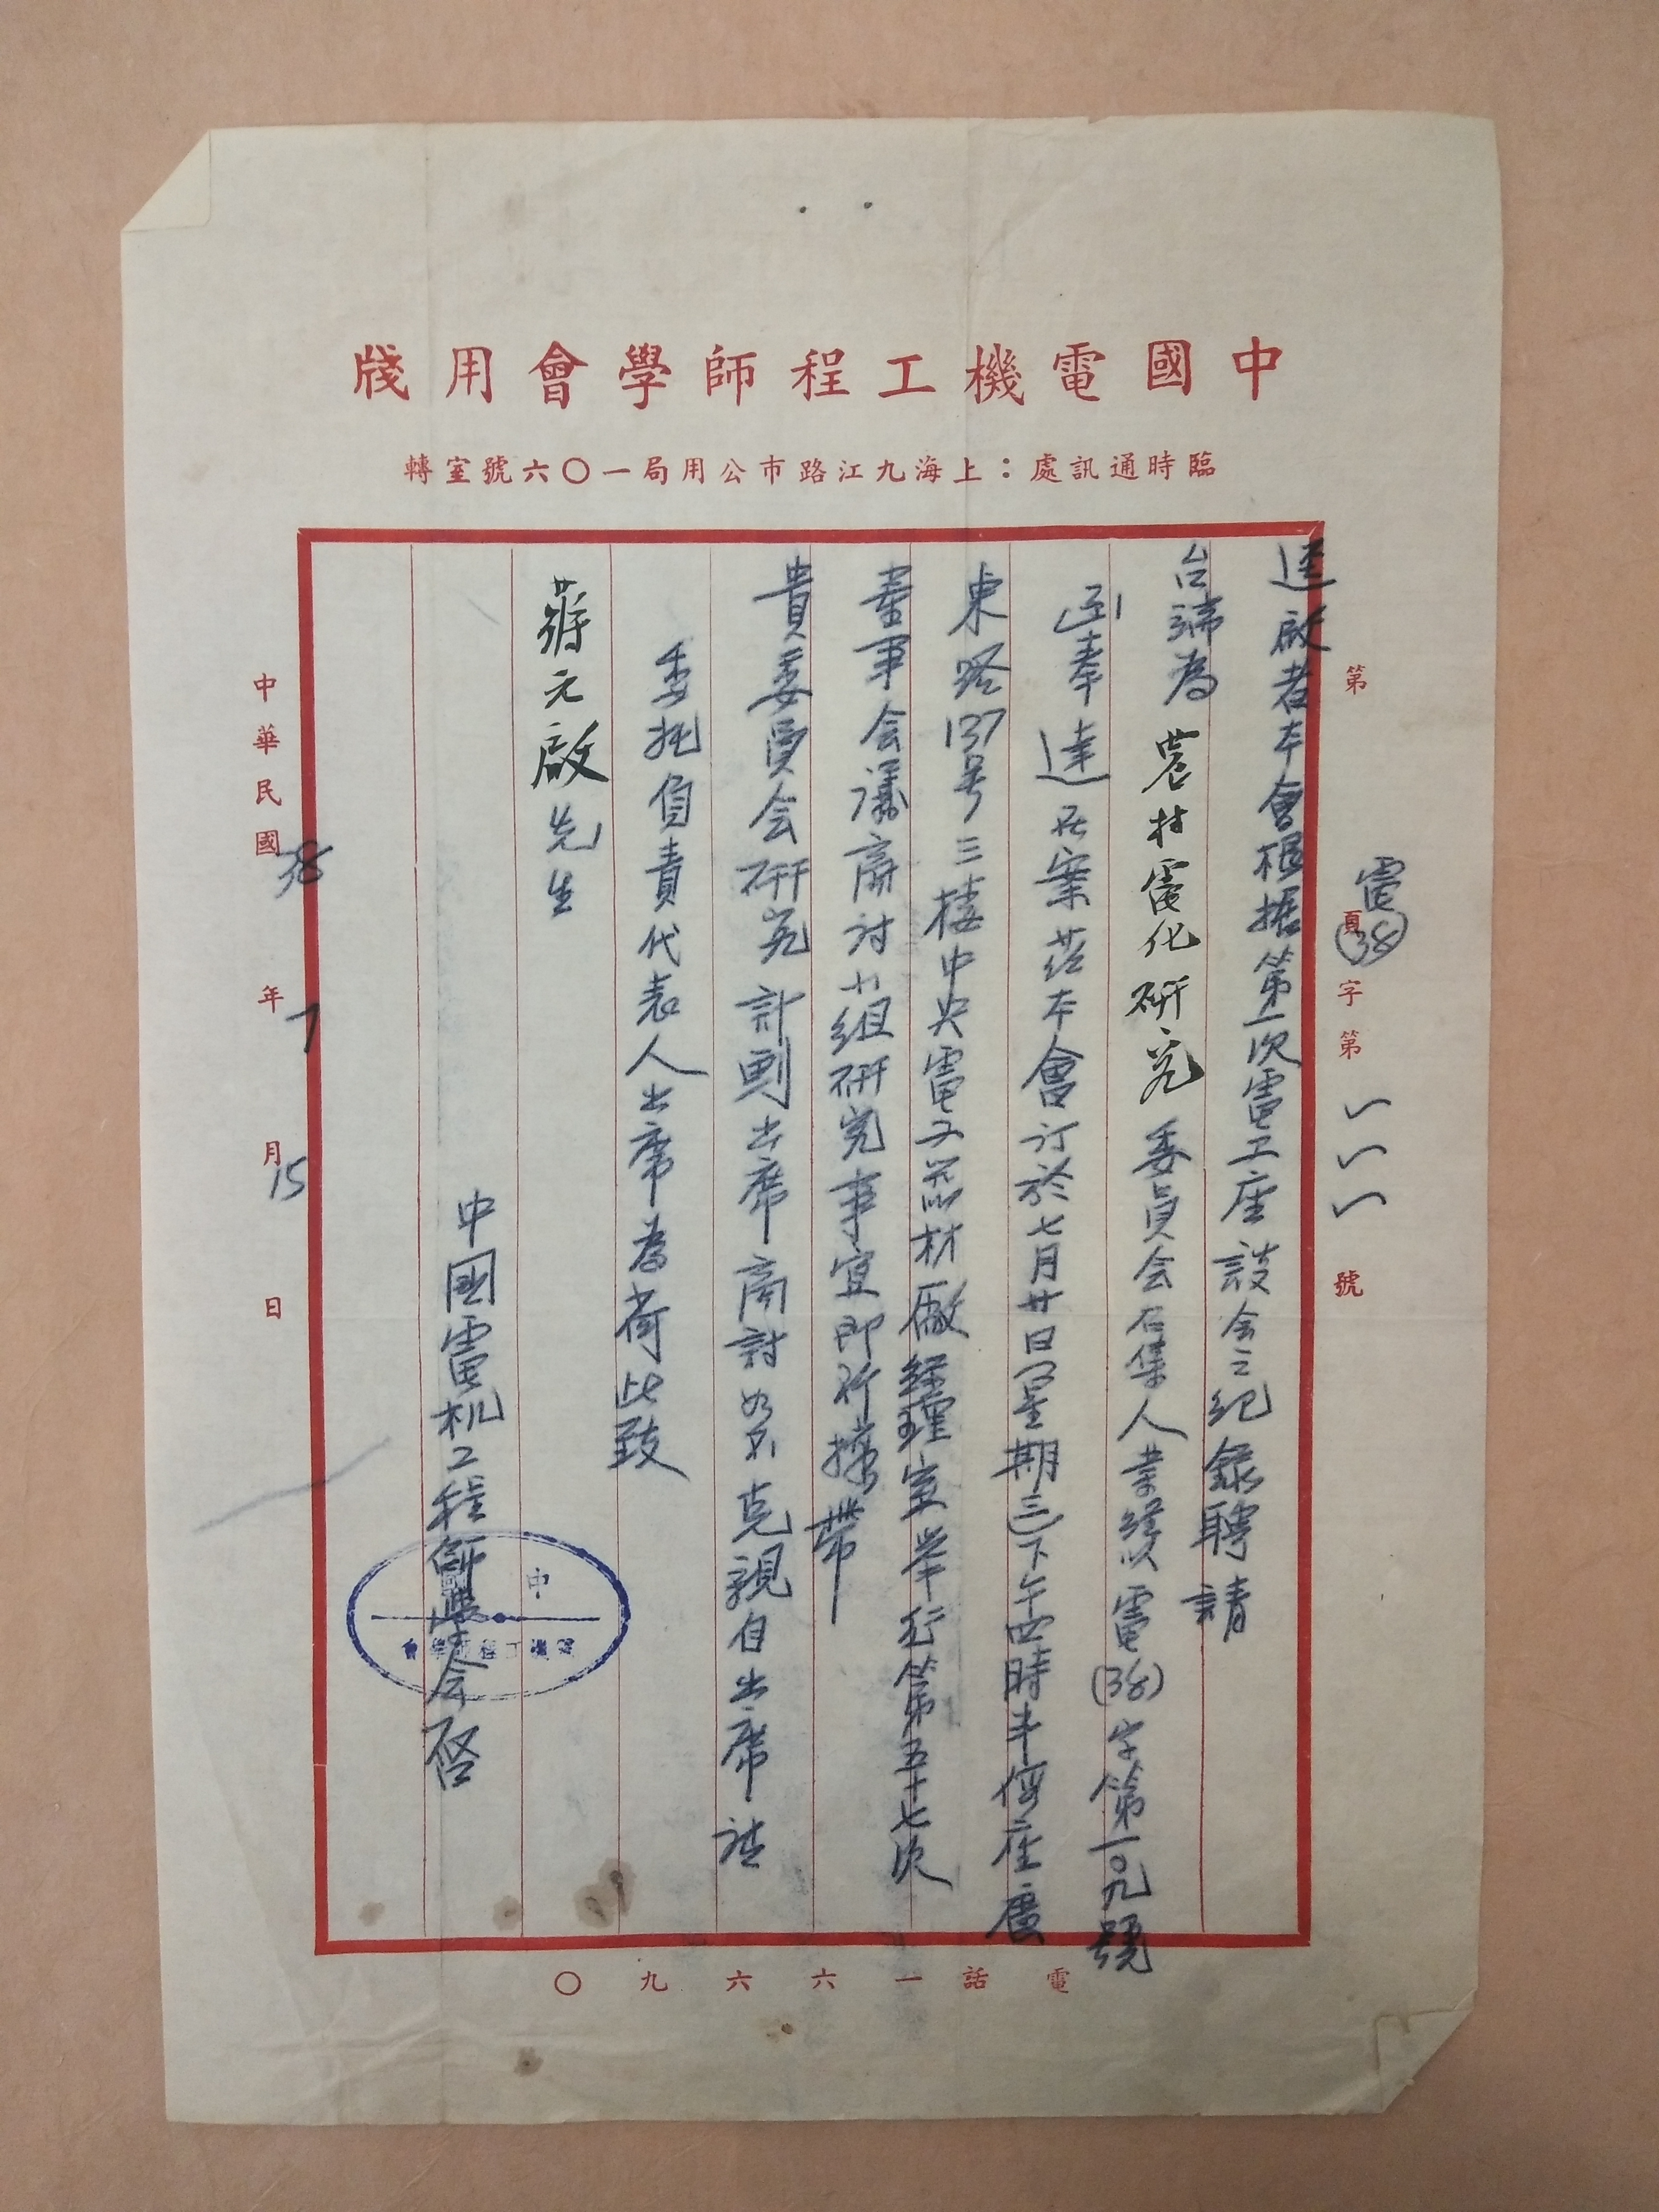 中國電機工程師學會用牋
臨時通訊處：上海九江路市公用局一〇六號室轉
第 頁 字第 號
電(38) 111
逕啟者本會根据第一次電工座談会之紀錄聘請
台端為農村電化研究委員会召集人業經以電(38)字第一〇九號
函奉達在案茲本會訂於七月廿日(星期三)下午四時半假座廣
東路137号三樓中央電工器材廠經理室举行第五十七次
董事会議商討小組研究事宜即祈攜帶
貴委員会研究計劃出席商討如不克親自出席請
委托負責代表人出席為荷此致
蔣元啟先生
中國電机工程師學会啓
中 電機工程師學會
中華民國38年7月15日
電話一六六九〇